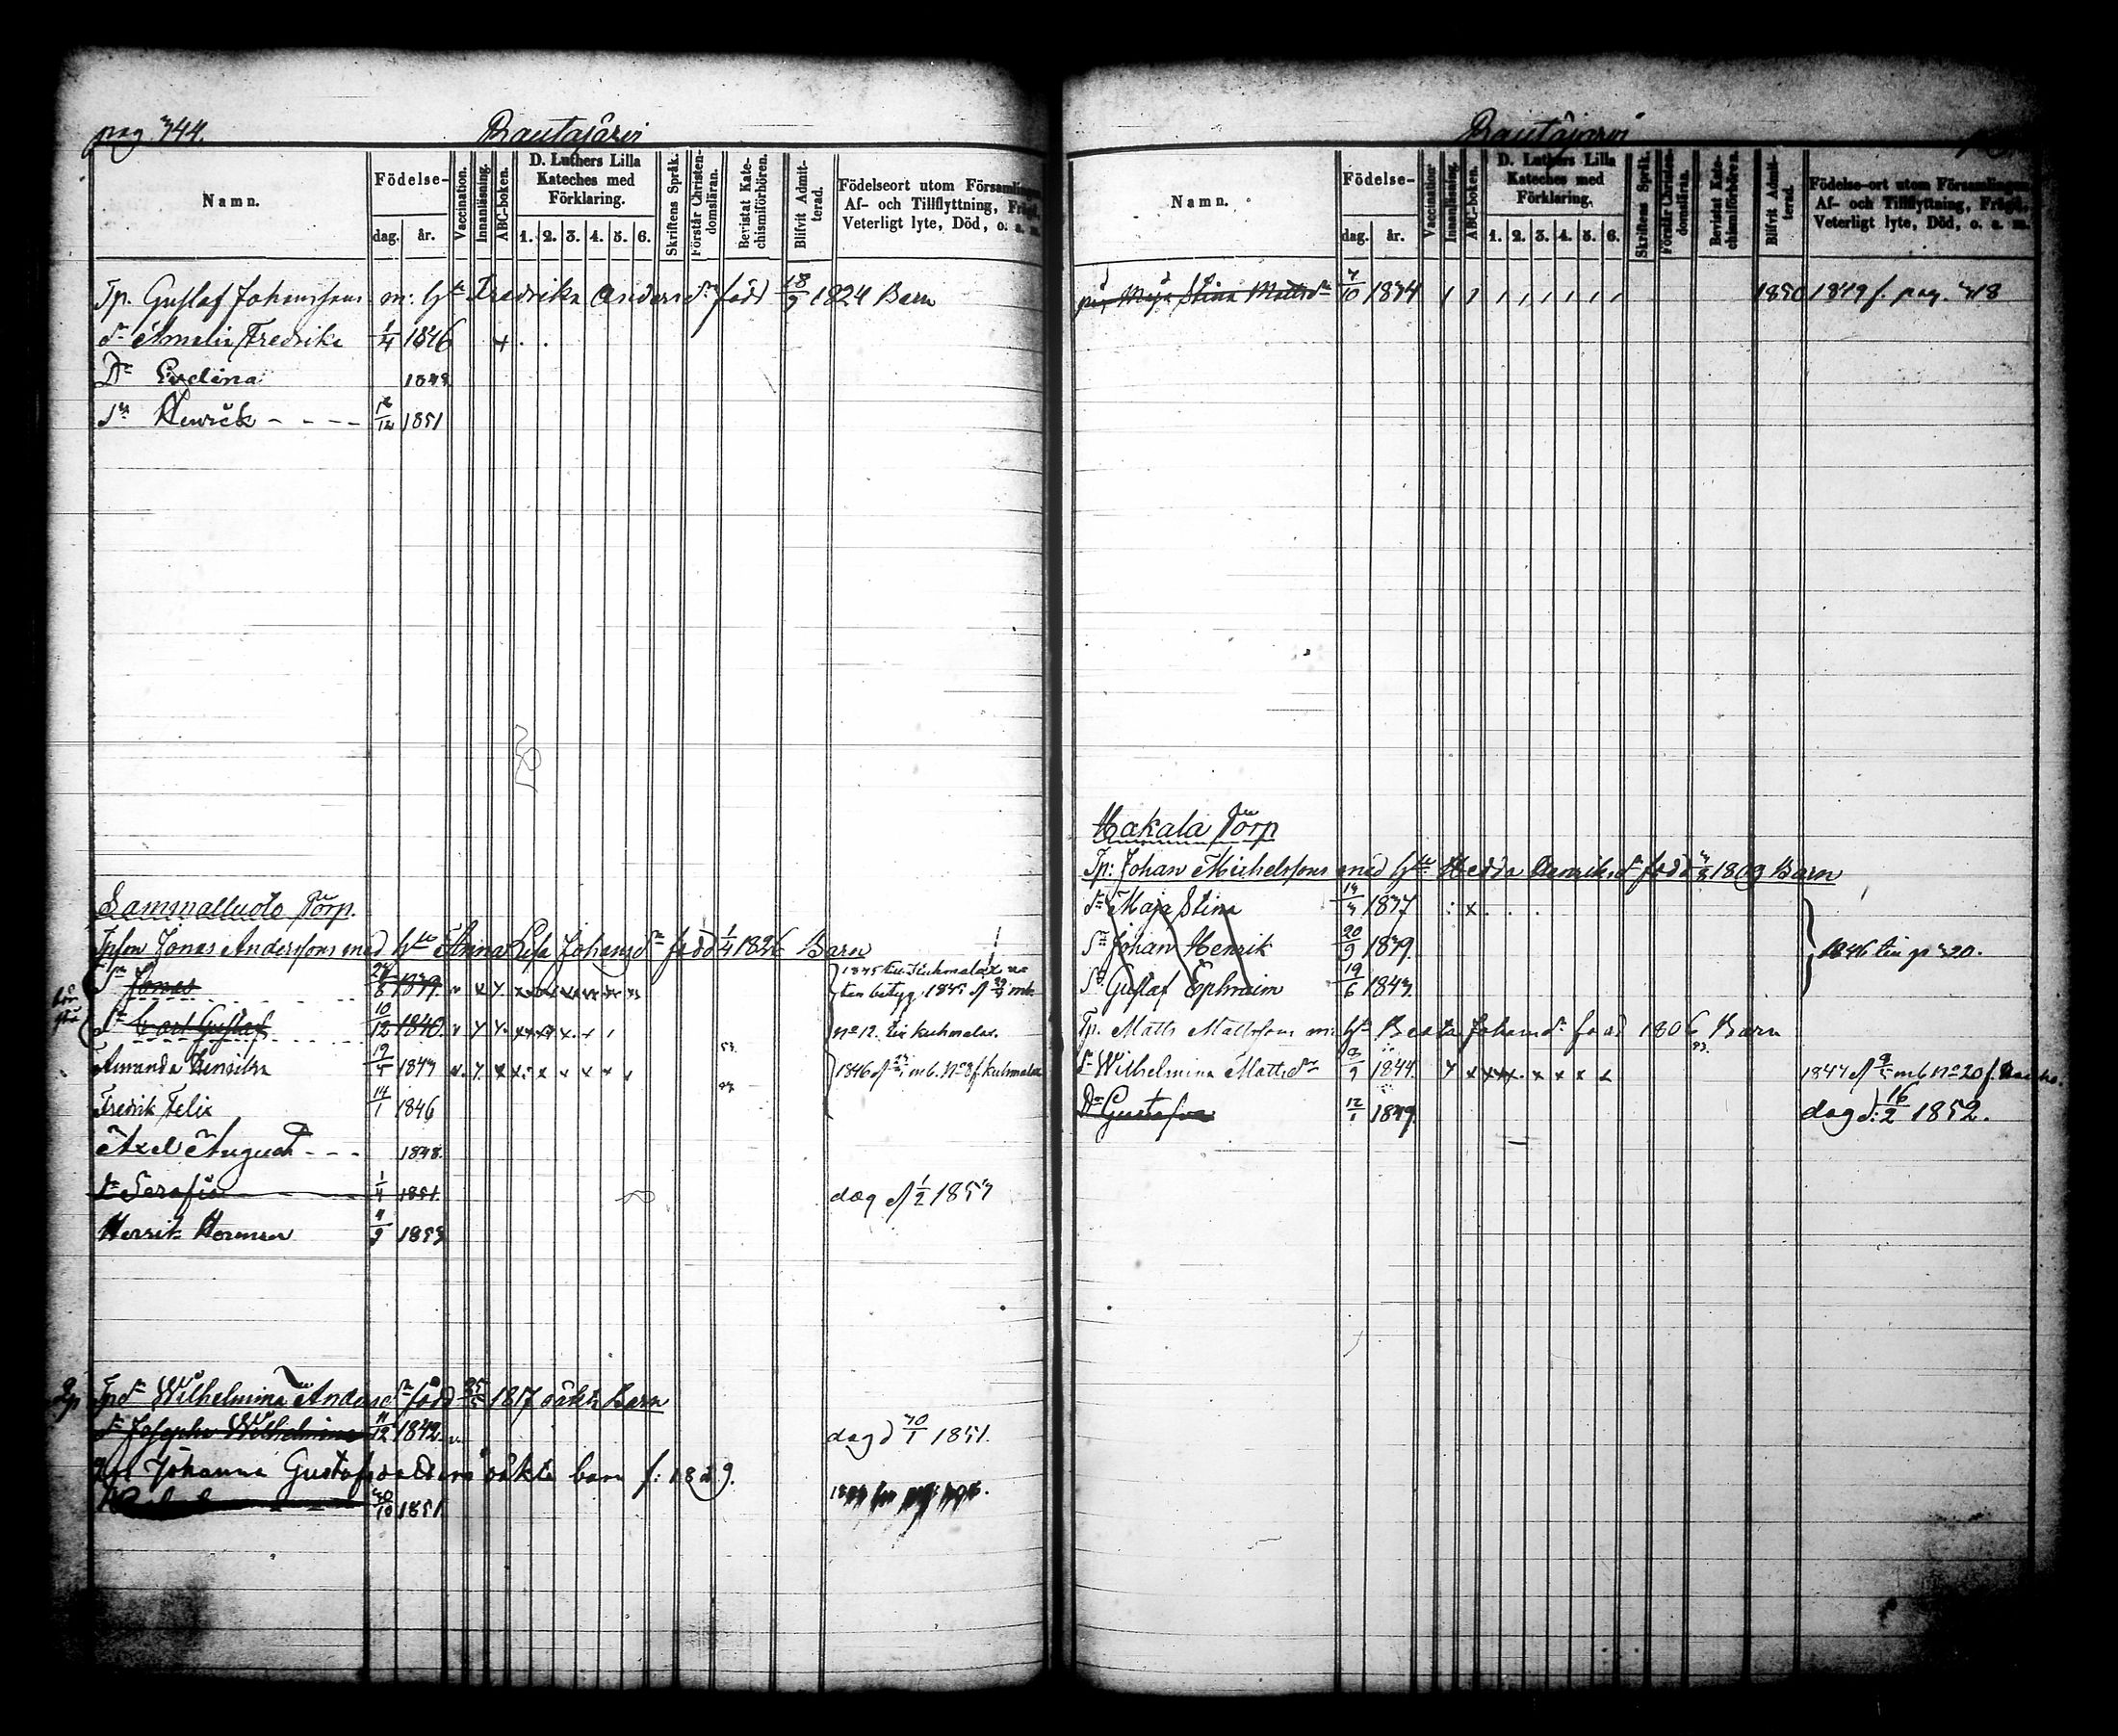 pag 344.
Rautajärvi
Namn.
Födelse-
dag.
år.
Vaccination.
Innanläsning.
ABC-boken.
D. Luthers Lilla
Kateches med
Förklaring.
1. 2. 3. 4. 5. 6.
Skriftens Språk.
Förstår Christen-
domsläran.
Bevistat Kate-
chismiförhören.
Blifvit Admit-
terad.
Födelseort utom Församlingen
Af- och Tillflyttning, Frägd,
Veterligt lyte, Död, o. a. m.
Tp. Gustaf Johanssons m: hu Fredrika Andersdr född 18/9 1824 Barn
dr Amalia Fredrika 1/4 1846
Dr Evelina 1849
Sn Henrick 12/12 1851
Sammalluoto Torp.
Tpson Jonas Anderssons med hu Anna Lisa Johansdr född 1/4 1826 Barn
Sn Jonas 1839.
Sn Carl Gustaf 10/12 1840.
No 12. till Kuhmalax.
Amanda Henrika 19/5 1843
1846 mb. No 8 f. Kuhmalax
Fredrik Felix 14/1 1846
Axel August 1848.
dr Serafia 1/4 1851.
dog d 1/2 1853
Herrik Herman 4/9 1853
Tpdr Wilhelmina Andersdr född 25/5 1817 oäkta Barn
dr Josepha Wilhelmina 11/12 1842
dog d 30/1 1851.
Johanna Gustafsdotters oäkta barn f: 1829.
30/10 1851
Rautajärvi
Namn.
Födelse-
dag.
år.
Vaccination.
Innanläsning.
ABC-boken.
D. Luthers Lilla
Kateches med
Förklaring.
1. 2. 3. 4. 5. 6.
Skriftens Språk.
Förstår Christen-
domsläran.
Bevistat Kate-
chismiförhören.
Blifvit Admit-
terad.
Födelse-ort utom Församlingen
Af- och Tillflyttning, Frägd,
Veterligt lyte, Död, o. a. m.
pig Maja Stina Mattsdr 7/10 1834 1850 1849 f. pag. 318
Hakala Torp
Tp: Johan Michelssons med hu Hedda Henriksdr född 1809 Barn
dr Maja Stina 1837
Sn Johan Henrik 20/9 1839.
1846 till p 320.
Sn Gustaf Ephraim 19/6 1843
Tp. Matts Mattssons m: hu Beata Johansdr född 1806 Barn
dr Wilhelmina Mattsdr 1844.
Dr Gustafva 12/1 1849
dog d: 16/2 1852.